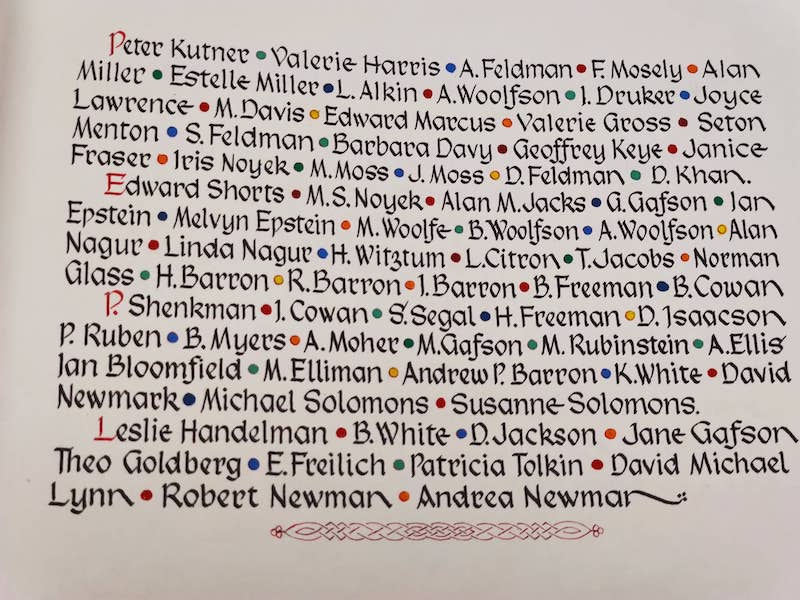 Peter Kutner • Valerie Harris • A. Feldman • F. Mosely • Alan
Miller • Estelle Miller • L. Alkin • A. Woolfson • I. Druker • Joyce
Lawrence • M. Davis • Edward Marcus • Valerie Gross • Seton
Menton • S. Feldman • Barbara Davy • Geoffrey Keye • Janice
Fraser • Iris Noyek • M. Moss • J. Moss • D. Feldman • D. Khan.
Edward Shorts • M.S. Noyek • Alan M. Jacks • G. Gafson • Ian
Epstein • Melvyn Epstein • M. Woolfe • B. Woolfson • A. Woolfson • Alan
Nagur • Linda Nagur • H. Witztum • L. Citron • T. Jacobs • Norman
Glass • H. Barron • R. Barron • I. Barron • B. Freeman • B. Cowan
P. Shenkman • J. Cowan • S. Segal • H. Freeman • D. Isaacson
P. Ruben • B. Myers • A. Moher • M. Gafson • M. Rubinstein • A. Ellis
Ian Bloomfield • M. Elliman • Andrew P. Barron • K. White • David
Newmark • Michael Solomons • Susanne Solomons.
Leslie Handelman • B. White • D. Jackson • Jane Gafson
Theo Goldberg • E. Freilich • Patricia Tolkin • David Michael
Lynn • Robert Newman • Andrea Newman